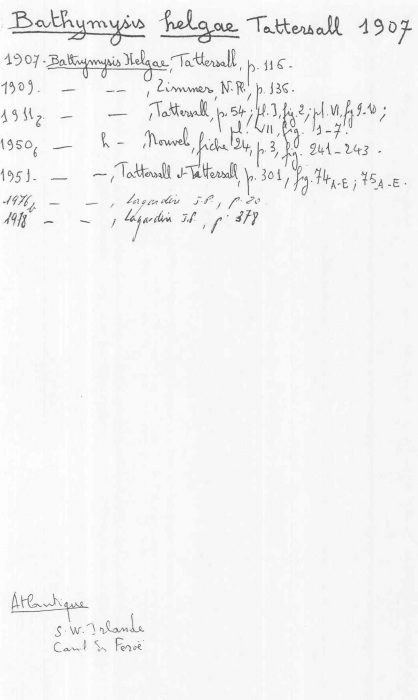 Bathymysis helgae Tattersall 1907
1907. Bathymysis Helgae, Tattersall, p. 116.
1909. — — , Zimmer, N.P., p. 136.
1911b — — , Tattersall, p. 54; pl. I, fig. 2; pl. VI, fig 9-10;
pl. VII, fig. 1-7.
1950b — h — , Nouvel, fiche 24, p. 3, fig. 241-243.
1951. — — , Tattersall & Tattersall, p. 301, fig. 74 A-E; 75 A-E.
1976b — — , Lagardère J.P., p. 20.
1978 — — , Lagardère J.P., p. 378
Atlantique
S.W. Irlande